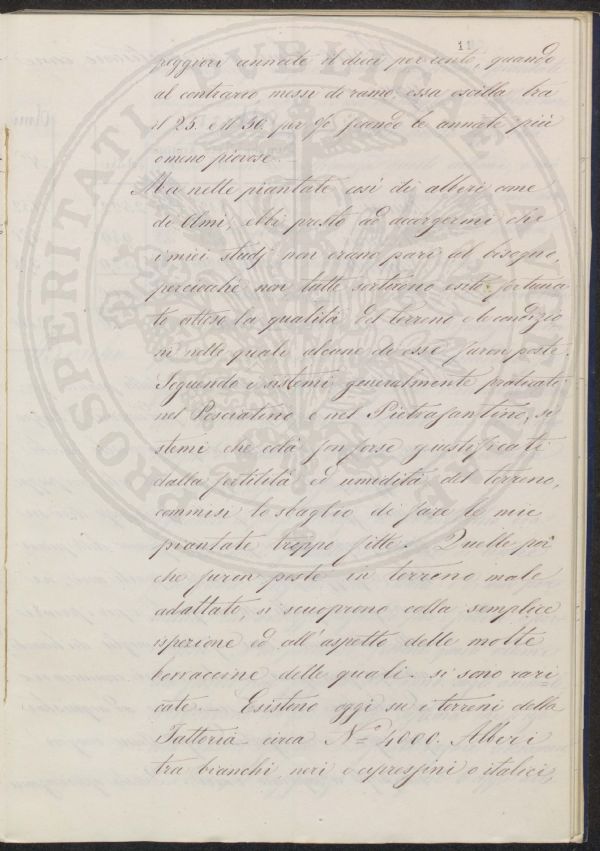 11
peggiori annate il dieci per cento, quando
al contrario messi di ramo, essa oscilla tra
il 25. e il 30. per % secondo le annate più
o meno piovose. —
Ma nelle piantate così di alberi come
di Olmi, ebbi presto ad accorgermi che
i miei studj non erano pari al bisogno,
perciocchè non tutte sortirono esito fortuna
to atteso la qualità del terreno e le condizio
ni nelle quali alcune di esse furon poste.
Seguendo i sistemi generalmente praticati
nel Pesciatino e nel Pietrasantino, si
stemi che colà son forse giustificati
dalla fertilità ed umidità del terreno,
commisi lo sbaglio di fare le mie
piantate troppo fitte. Quelle poi
che furon poste in terreno male
adattato, si scuoprono colla semplice
ispezione ed all'aspetto delle molte
borraccine delle quali si sono vari
cate. — Esistono oggi su i terreni della
Fattoria circa N.º 4000. Alberi
tra bianchi, neri e cipressini o italici,
PROSPERITATI PUBLICAE AUGENDAE